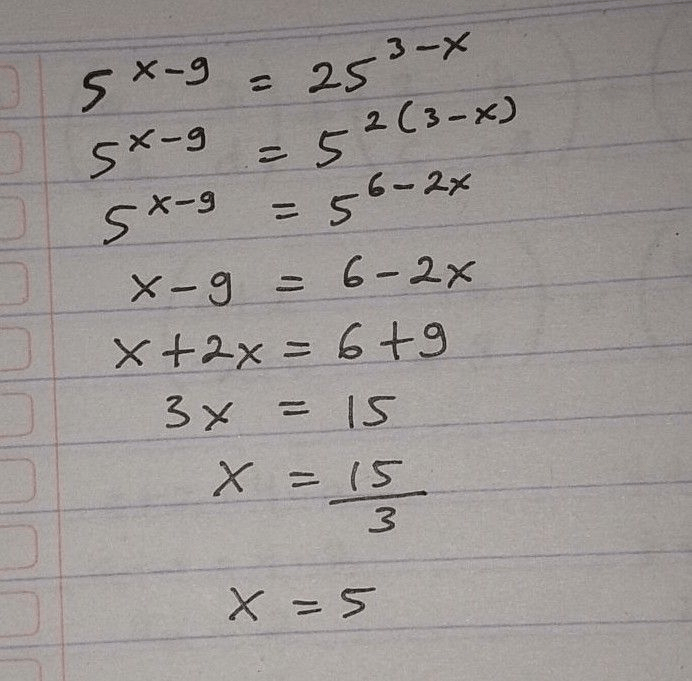 5^(x-9) = 25^(3-x)
5^(x-9) = 5^(2(3-x))
5^(x-9) = 5^(6-2x)
x-9 = 6-2x
x+2x = 6+9
3x = 15
x = 15/3
x = 5